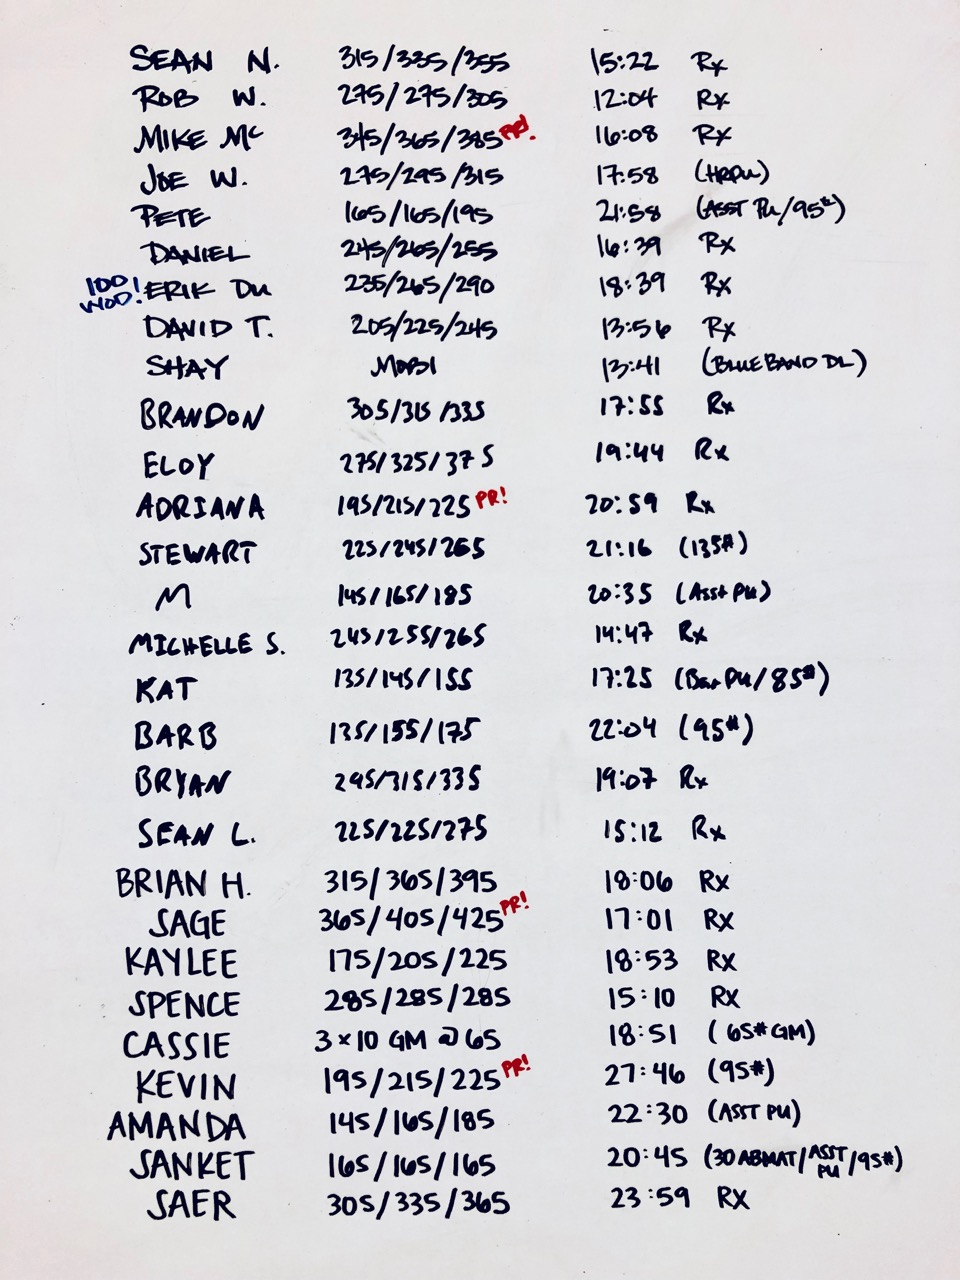 SEAN N. 315/335/355 15:22 Rx
ROB W. 275/275/305 12:04 Rx
MIKE Mc 345/365/385 PR! 16:08 Rx
JOE W. 275/295/315 17:58 (HRPU)
PETE 165/165/195 21:58 (ASST PU/95#)
DANIEL 245/265/255 16:39 Rx
100 WOD! ERIK DU 235/265/290 18:39 Rx
DAVID T. 205/225/245 13:56 Rx
SHAY MOBI 13:41 (BLUE BAND DL)
BRANDON 305/315/335 17:55 Rx
ELOY 275/325/375 19:44 Rx
ADRIANA 195/215/225 PR! 20:59 Rx
STEWART 225/245/265 21:16 (135#)
M 145/165/185 20:35 (Asst PU)
MICHELLE S. 245/255/265 14:47 Rx
KAT 135/145/155 17:25 (Bar PU/85#)
BARB 135/155/175 22:04 (95#)
BRYAN 295/315/335 19:07 Rx
SEAN L. 225/225/275 15:12 Rx
BRIAN H. 315/365/395 18:06 RX
SAGE 365/405/425 PR! 17:01 RX
KAYLEE 175/205/225 18:53 RX
SPENCE 285/285/285 15:10 RX
CASSIE 3x10 GM @ 65 18:51 (65# GM)
KEVIN 195/215/225 PR! 27:46 (95#)
AMANDA 145/165/185 22:30 (ASST PU)
SANKET 165/165/165 20:45 (30 ABMAT/ASST PU/95#)
SAER 305/335/365 23:59 RX